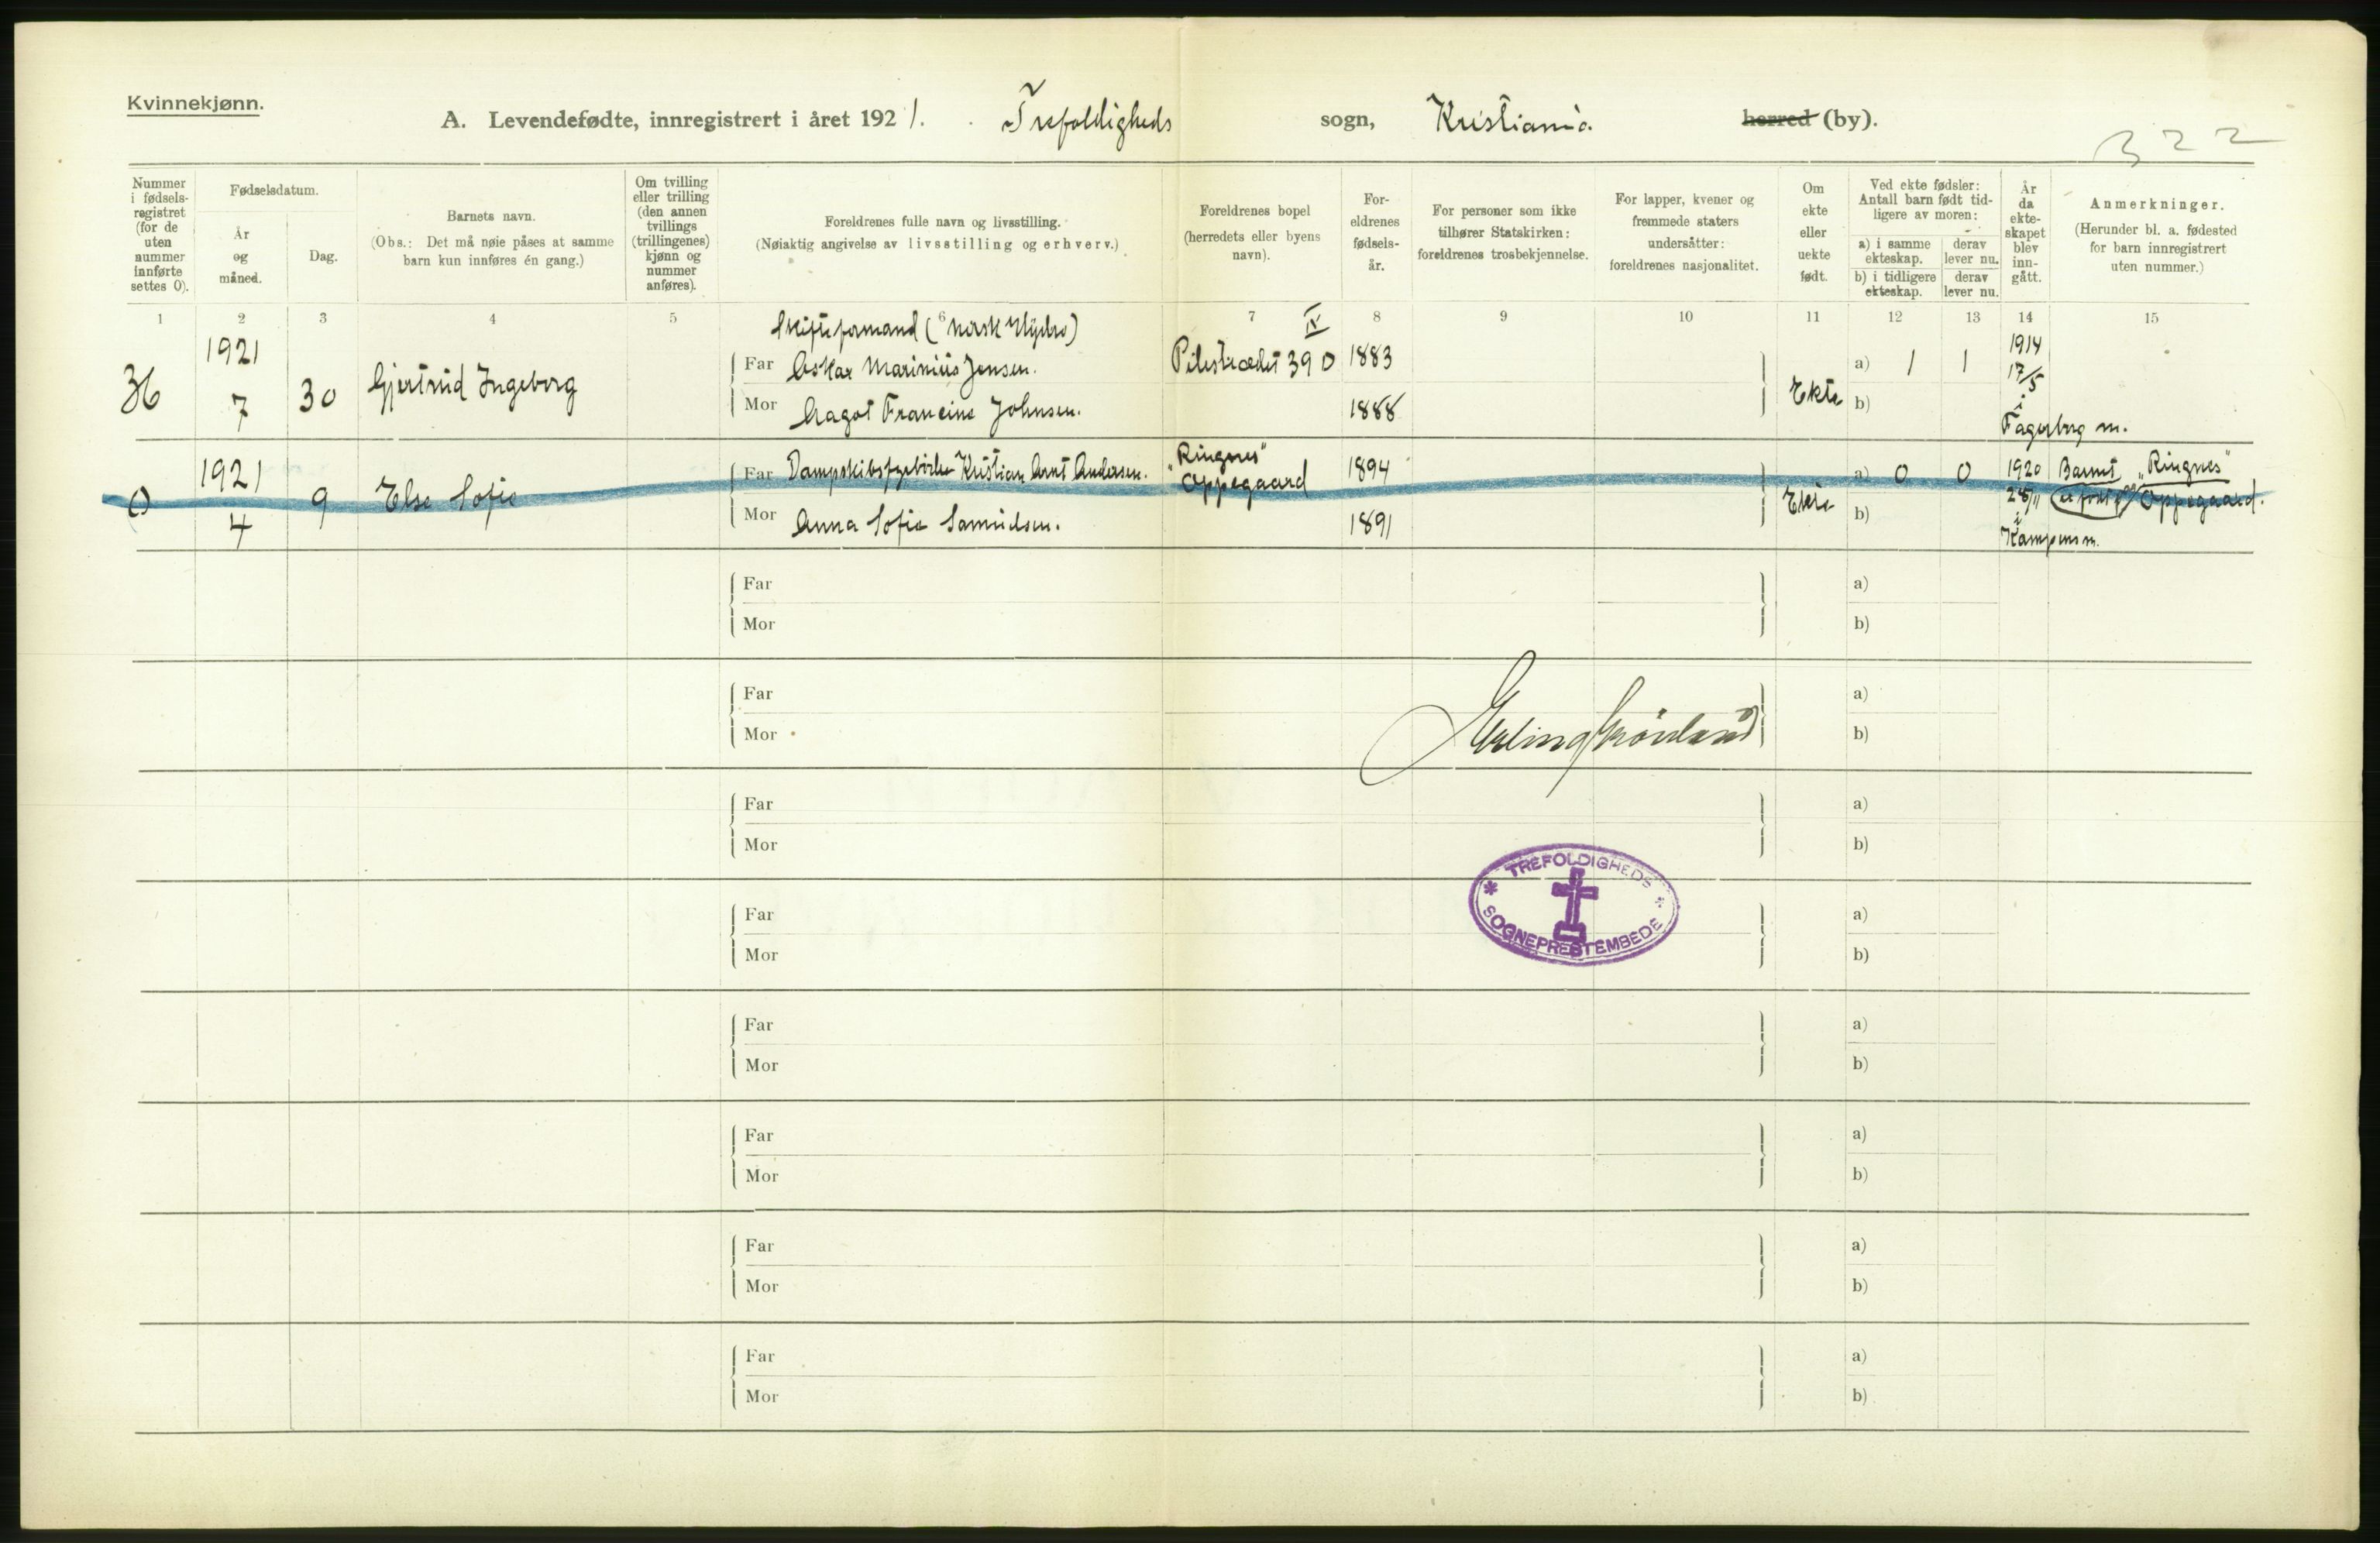 Kvinnekjønn.
A. Levendefødte, innregistrert i året 1921. Trefoldigheds sogn, Kristiania herred (by).
322
Nummer i fødselsregistret (for de uten nummer innførte settes 0).
Fødselsdatum.
År og måned.
Dag.
Barnets navn.
(Obs.: Det må nøie påses at samme barn kun innføres én gang.)
Om tvilling eller trilling (den annen tvillings (trillingenes) kjønn og nummer anføres).
Foreldrenes fulle navn og livsstilling.
(Nøiaktig angivelse av livsstilling og erhverv.)
Foreldrenes bopel (herredets eller byens navn).
Foreldrenes fødselsår.
For personer som ikke tilhører Statskirken: foreldrenes trosbekjennelse.
For lapper, kvener og fremmede staters undersåtter: foreldrenes nasjonalitet.
Om ekte eller uekte født.
Ved ekte fødsler: Antall barn født tidligere av moren:
a) i samme ekteskap. derav lever nu.
b) i tidligere ekteskap. derav lever nu.
År da ekteskapet blev inngått.
Anmerkninger.
(Herunder bl. a. fødested for barn innregistrert uten nummer.)
1 2 3 4 5 6 7 8 9 10 11 12 13 14 15
Skifteformand (Norsk Hydro) IV
36 1921 7 30 Gjertrud Ingeborg Far Oskar Marinius Jensen. Pilestrædet 39 0 1883 Ekte a) 1 1 1914 17/5 i Fagerborg m.
Mor Aagot Francine Johnsen. 1888 b)
0 1921 4 9 Else Sofie Far Dampskibsfyrbøter Kristian Arnt Andersen. "Ringnes" Oppegaard 1894 Ekte a) 0 0 1920 28/11 i Kampens m. Barnet er født på "Ringnes" Oppegaard.
Mor Anna Sofie Samuelsen. 1891 b)
Far a)
Mor b)
Far a)
Mor b)
Erling Grønland
Far a)
Mor b)
Far a)
Mor b)
TREFOLDIGHEDS
SOGNEPRESTEMBEDE
Far a)
Mor b)
Far a)
Mor b)
Far a)
Mor b)
Far a)
Mor b)